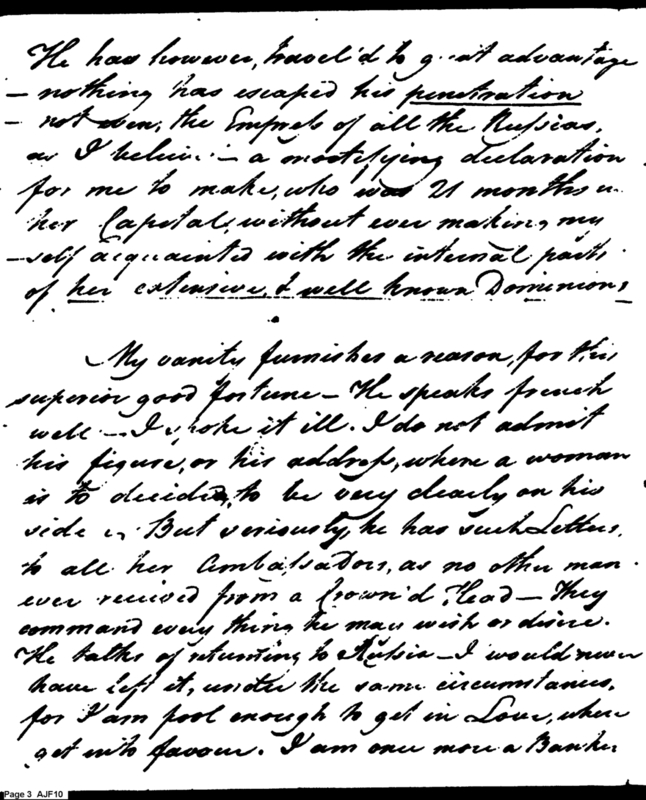 He has however, travel'd to great advantage
– nothing has escaped his penetration
– not even, the Empress of all the Russias,
as I believe – a mortifying declaration
for me to make, who was 21 months in
her Capital, without ever making my
–self acquainted with the internal parts
of her extensive, & well known Dominions
My vanity furnishes a reason, for this
superior good fortune – He speaks french
well – I spoke it ill. I do not admit
his figure, or his address, where a woman
is to decide, to be very clearly on his
side – But seriously, he has such Letters,
to all her Ambassadors, as no other man
ever received from a Crown'd Head – They
command every thing he may wish or desire.
He talks of returning to Russia – I would never
have left it, under the same circumstances,
for I am fool enough to get in Love, where I
get into favour. I am once more a Banker
Page 3 AJF10